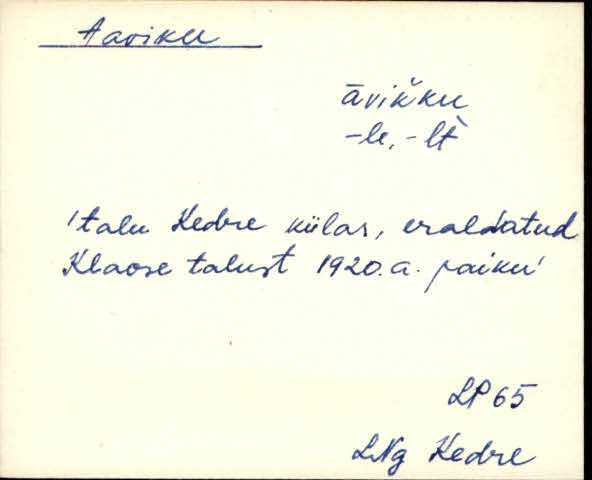 Aaviku
āvik̆ku
-le, -lt̀
'talu Kedre külas, eraldatud
Klaose talust 1920.a. paiku'
LP 65
LNg Kedre